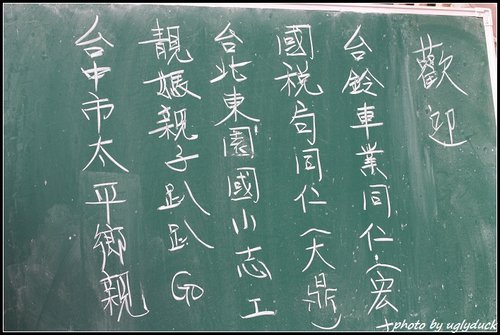 歡迎
台鈴車業同仁(宏
國稅局同仁(大鼎
台北東園國小志工
靚媽親子趴趴Go
台中市太平鄉親
photo by uglyduck